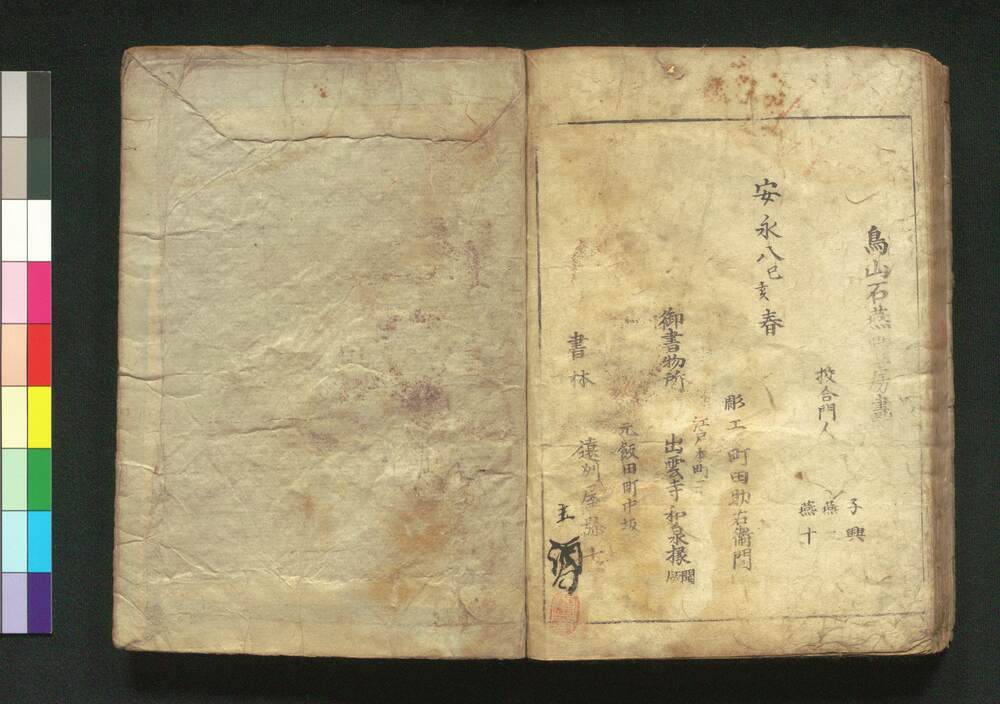 鳥山石燕豊房畫
校合門人
子興
燕二
燕十
安永八己亥春
彫工 町田助右衛門
江戸本町
御書物所 出雲寺和泉掾
元飯田町中坂
書林 遠州屋
主